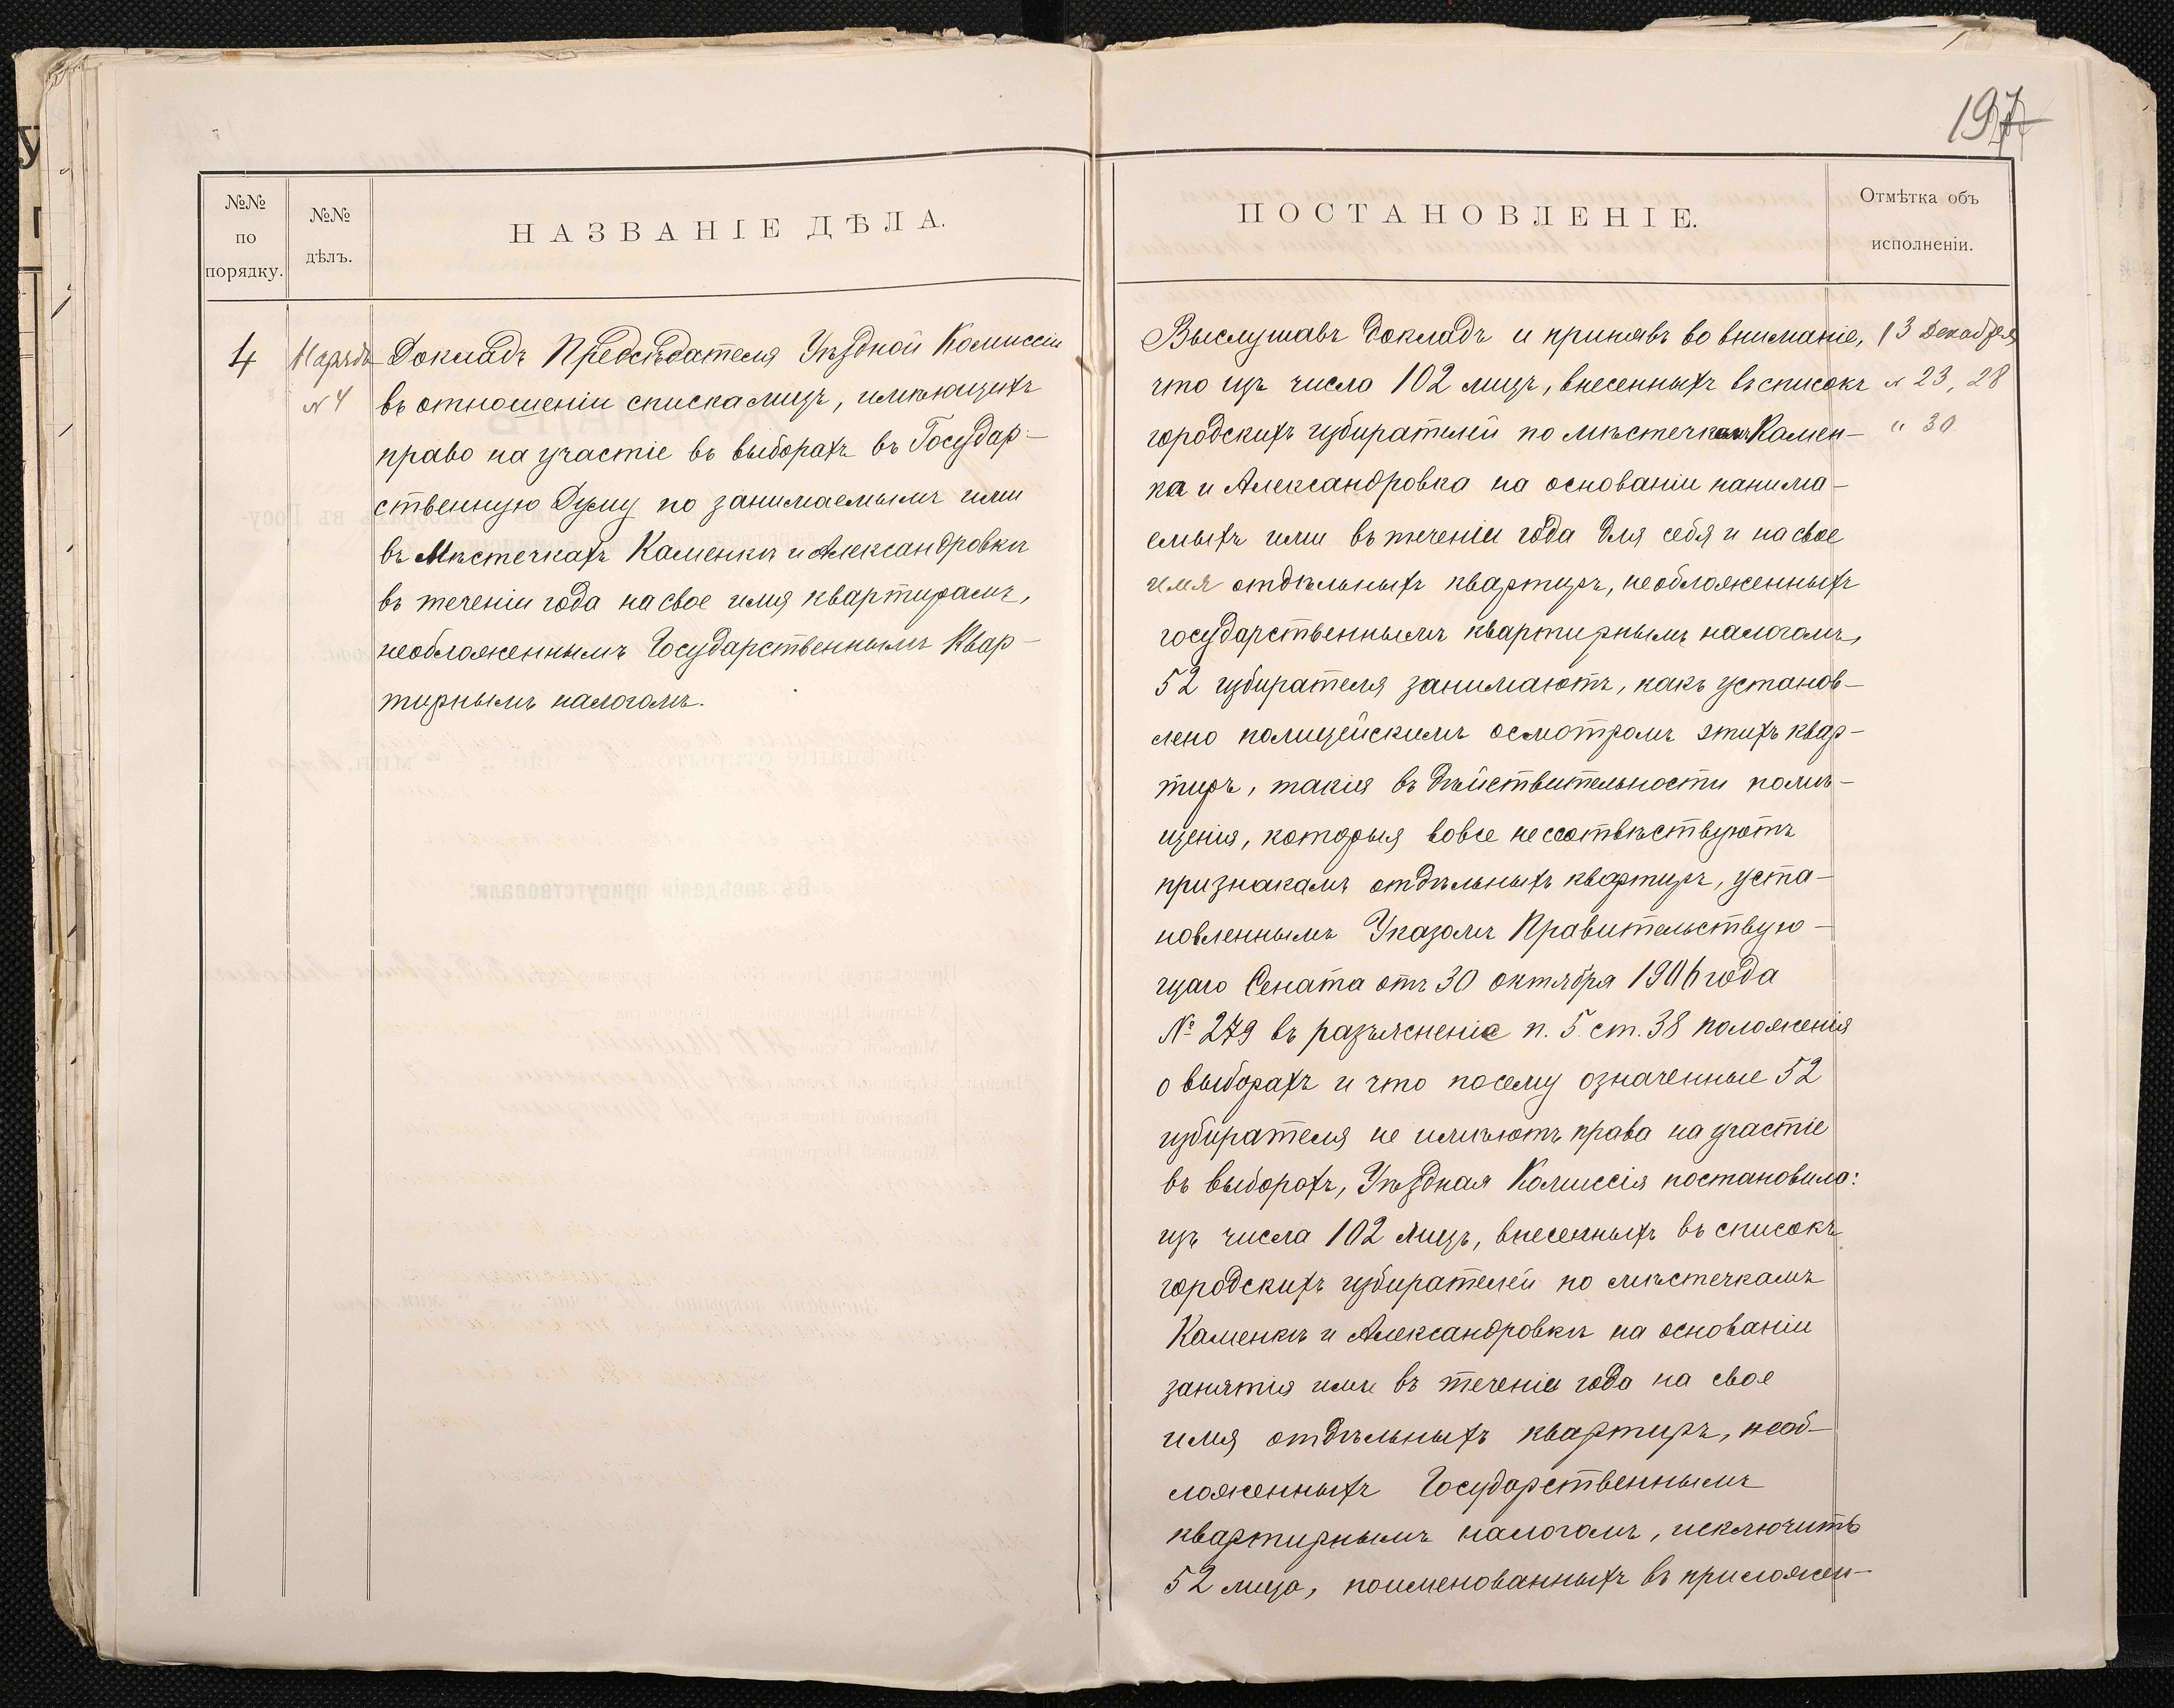 197
№№ по порядку.
№№ дѣлъ.
НАЗВАНІЕ ДѢЛА.
4
Нарядъ
№ 4
Докладъ Предсѣдателя Уѣздной Комиссіи
въ отношеніи списка лицъ, имѣющихъ
право на участіе въ выборахъ въ Государ-
ственную Думу по занимаемымъ ими
въ Мѣстечкахъ Каменкѣ и Александровкѣ
въ теченіи года на свое имя квартирамъ,
необложеннымъ Государственнымъ Квар-
тирнымъ налогомъ.
ПОСТАНОВЛЕНІЕ.
Отмѣтка объ исполненіи.
Выслушавъ докладъ и принявъ во вниманіе,
что изъ число 102 лицъ, внесенныхъ въ списокъ
городскихъ избирателей по мѣстечкамъ Камен-
ка и Александровка на основаніи нанима-
емыхъ ими въ теченіи года для себя и на свое
имя отдѣльныхъ квартиръ, необложенныхъ
государственнымъ квартирнымъ налогомъ,
52 избирателя занимаютъ, какъ установ-
лено полицейскимъ осмотромъ этихъ квар-
тиръ, такія въ дѣйствительности помѣ-
щенія, которыя вовсе не соотвѣствуютъ
признакамъ отдѣльныхъ квартиръ, уста-
новленнымъ Указомъ Правительствую-
щаго Сената отъ 30 октября 1906 года
№ 279 въ разъясненіе п. 5 ст. 38 положенія
о выборахъ и что посему означенные 52
избирателя не имѣютъ права на участіе
въ выборахъ, Уѣздная Комиссія постановила:
изъ числа 102 лицъ, внесенныхъ въ списокъ
городскихъ избирателей по мѣстечкамъ
Каменкѣ и Александровкѣ на основаніи
занятія ими въ теченіи года на свое
имя отдѣльныхъ квартиръ, необ-
ложенныхъ Государственнымъ
квартирнымъ налогомъ, исключить
52 лица, поименованныхъ въ приложен-
13 Декабря
№ 23, 28
" 30